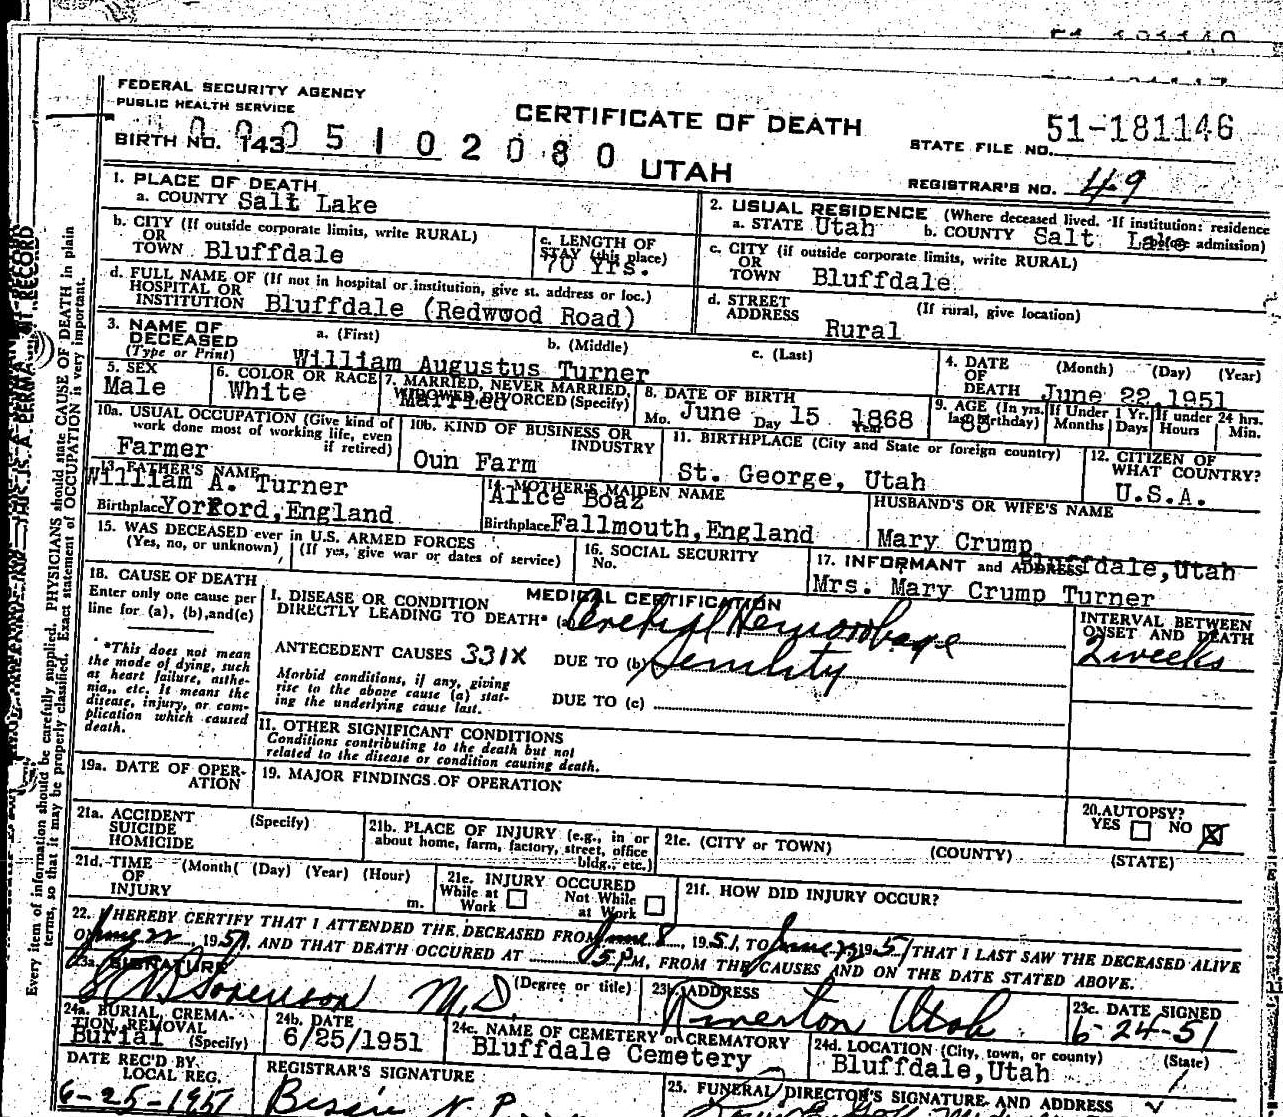 FEDERAL SECURITY AGENCY
PUBLIC HEALTH SERVICE
CERTIFICATE OF DEATH
51-181146
STATE FILE NO.
BIRTH NO. 143 0005102080
UTAH
REGISTRAR'S NO. 49
1. PLACE OF DEATH
a. COUNTY Salt Lake
2. USUAL RESIDENCE (Where deceased lived. If institution: residence before admission)
a. STATE Utah b. COUNTY Salt Lake
b. CITY (If outside corporate limits, write RURAL)
OR
TOWN Bluffdale
c. LENGTH OF
STAY (this place)
70 Yrs.
c. CITY (if outside corporate limits, write RURAL)
OR
TOWN Bluffdale
d. FULL NAME OF (If not in hospital or institution, give st. address or loc.)
HOSPITAL OR
INSTITUTION Bluffdale (Redwood Road)
d. STREET
ADDRESS (If rural, give location)
Rural
3. NAME OF
DECEASED
(Type or Print)
a. (First) b. (Middle) c. (Last)
William Augustus Turner
4. DATE (Month) (Day) (Year)
OF
DEATH June 22,1951
5. SEX
Male
6. COLOR OR RACE
White
7. MARRIED, NEVER MARRIED,
WIDOWED DIVORCED (Specify)
Married
8. DATE OF BIRTH
Mo. June Day 15 Year 1868
9. AGE (In yrs.
last birthday)
If Under 1 Yr.
Months Days
If under 24 hrs.
Hours Min.
10a. USUAL OCCUPATION (Give kind of
work done most of working life, even
if retired)
Farmer
10b. KIND OF BUSINESS OR
INDUSTRY
Oun Farm
11. BIRTHPLACE (City and State or foreign country)
St. George, Utah
12. CITIZEN OF
WHAT COUNTRY?
U.S.A.
13. FATHER'S NAME
William A. Turner
Birthplace Yorkord,England
14. MOTHER'S MAIDEN NAME
Alice Boaz
Birthplace Fallmouth,England
HUSBAND'S OR WIFE'S NAME
Mary Crump
15. WAS DECEASED ever in U.S. ARMED FORCES
(Yes, no, or unknown) (If yes, give war or dates of service)
16. SOCIAL SECURITY
No.
17. INFORMANT and ADDRESS
Bluffdale,Utah
Mrs. Mary Crump Turner
18. CAUSE OF DEATH
Enter only one cause per
line for (a), (b),and(c)
*This does not mean
the mode of dying, such
as heart failure, asthe-
nia,, etc. It means the
disease, injury, or com-
plication which caused
death.
MEDICAL CERTIFICATION
I. DISEASE OR CONDITION
DIRECTLY LEADING TO DEATH* (a) Hemorrhage
ANTECEDENT CAUSES 331X DUE TO (b) Senility
Morbid conditions, if any, giving
rise to the above cause (a) stat-
ing the underlying cause last.
DUE TO (c)
INTERVAL BETWEEN
ONSET AND DEATH
2 weeks
11. OTHER SIGNIFICANT CONDITIONS
Conditions contributing to the death but not
related to the disease or condition causing death.
19a. DATE OF OPER-
ATION
19. MAJOR FINDINGS OF OPERATION
20. AUTOPSY?
YES NO
21a. ACCIDENT (Specify)
SUICIDE
HOMICIDE
21b. PLACE OF INJURY (e.g., in or
about home, farm, factory, street, office
bldg., etc.)
21c. (CITY or TOWN) (COUNTY) (STATE)
21d. TIME (Month( (Day) (Year) (Hour)
OF
INJURY m.
21e. INJURY OCCURED
While at Work Not While at Work
21f. HOW DID INJURY OCCUR?
22. I HEREBY CERTIFY THAT I ATTENDED THE DECEASED FROM June 8, 1951, TO June 22 1951 THAT I LAST SAW THE DECEASED ALIVE
ON June 22, 1951, AND THAT DEATH OCCURED AT 5 P.M, FROM THE CAUSES AND ON THE DATE STATED ABOVE.
23a. SIGNATURE (Degree or title)
Sorenson M.D.
23b. ADDRESS
Riverton Utah
23c. DATE SIGNED
6-24-51
24a. BURIAL, CREMA-
TION, REMOVAL
Burial (Specify)
24b. DATE
6/25/1951
24c. NAME OF CEMETERY or CREMATORY
Bluffdale Cemetery
24d. LOCATION (City, town, or county) (State)
Bluffdale,Utah
DATE REC'D BY
LOCAL REG.
6-25-1951
REGISTRAR'S SIGNATURE
Bessie N. P
25. FUNERAL DIRECTOR'S SIGNATURE AND ADDRESS
THIS IS A PERMANENT RECORD
Every item of information should be carefully supplied. PHYSICIANS should state CAUSE OF DEATH in plain
terms, so that it may be properly classified. Exact statement of OCCUPATION is very important.